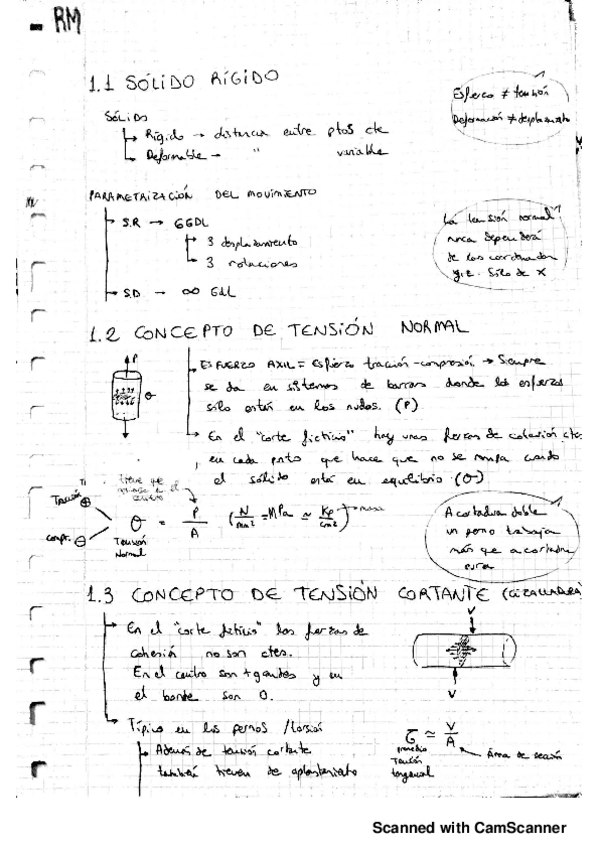 - RM
1.1 SÓLIDO RÍGIDO
Esfuerzo ≠ tensión
Deformación ≠ desplazamiento
SÓLIDO
↳ Rígido → distancia entre ptos cte
↳ Deformable → " variable
PARAMETRIZACIÓN DEL MOVIMIENTO
↳ S.R → 6GDL
↳ 3 desplazamiento
↳ 3 rotaciones
↳ S.D → ∞ GdL
La tensión normal
nunca dependerá
de las coordenadas
y i z. Sólo de X
1.2 CONCEPTO DE TENSIÓN NORMAL
P
σ
ESFUERZO AXIL = Esfuerzo tracción-compresión → Siempre
se da en sistemas de barras donde los esfuerzos
sólo están en los nudos. (P)
↳ En el "corte ficticio" hay unas fuerzas de cohesión ctes
en cada pnto que hace que no se rompa cuando
el sólido está en equilibrio (σ)
tiene que
en el
centro
Tracción ⊕
compr. ⊖
σ = P / A (N/mm² = MPa ≈ Kp/cm²)
Tensión
Normal
A cortadura doble
un perno trabaja
más que a cortadura
pura
1.3 CONCEPTO DE TENSIÓN CORTANTE (CIZALLADURA)
↳ En el "corte ficticio" las fuerzas de
cohesión no son ctes.
En el centro son + grandes y en
el borde son 0.
V
V
↳ Típico en los pernos / torsión
↳ Además de tensión cortante
también tienen de aplastamiento
τ ≃ V / A
promedio
Tensión
tangencial
Área de sección
Scanned with CamScanner